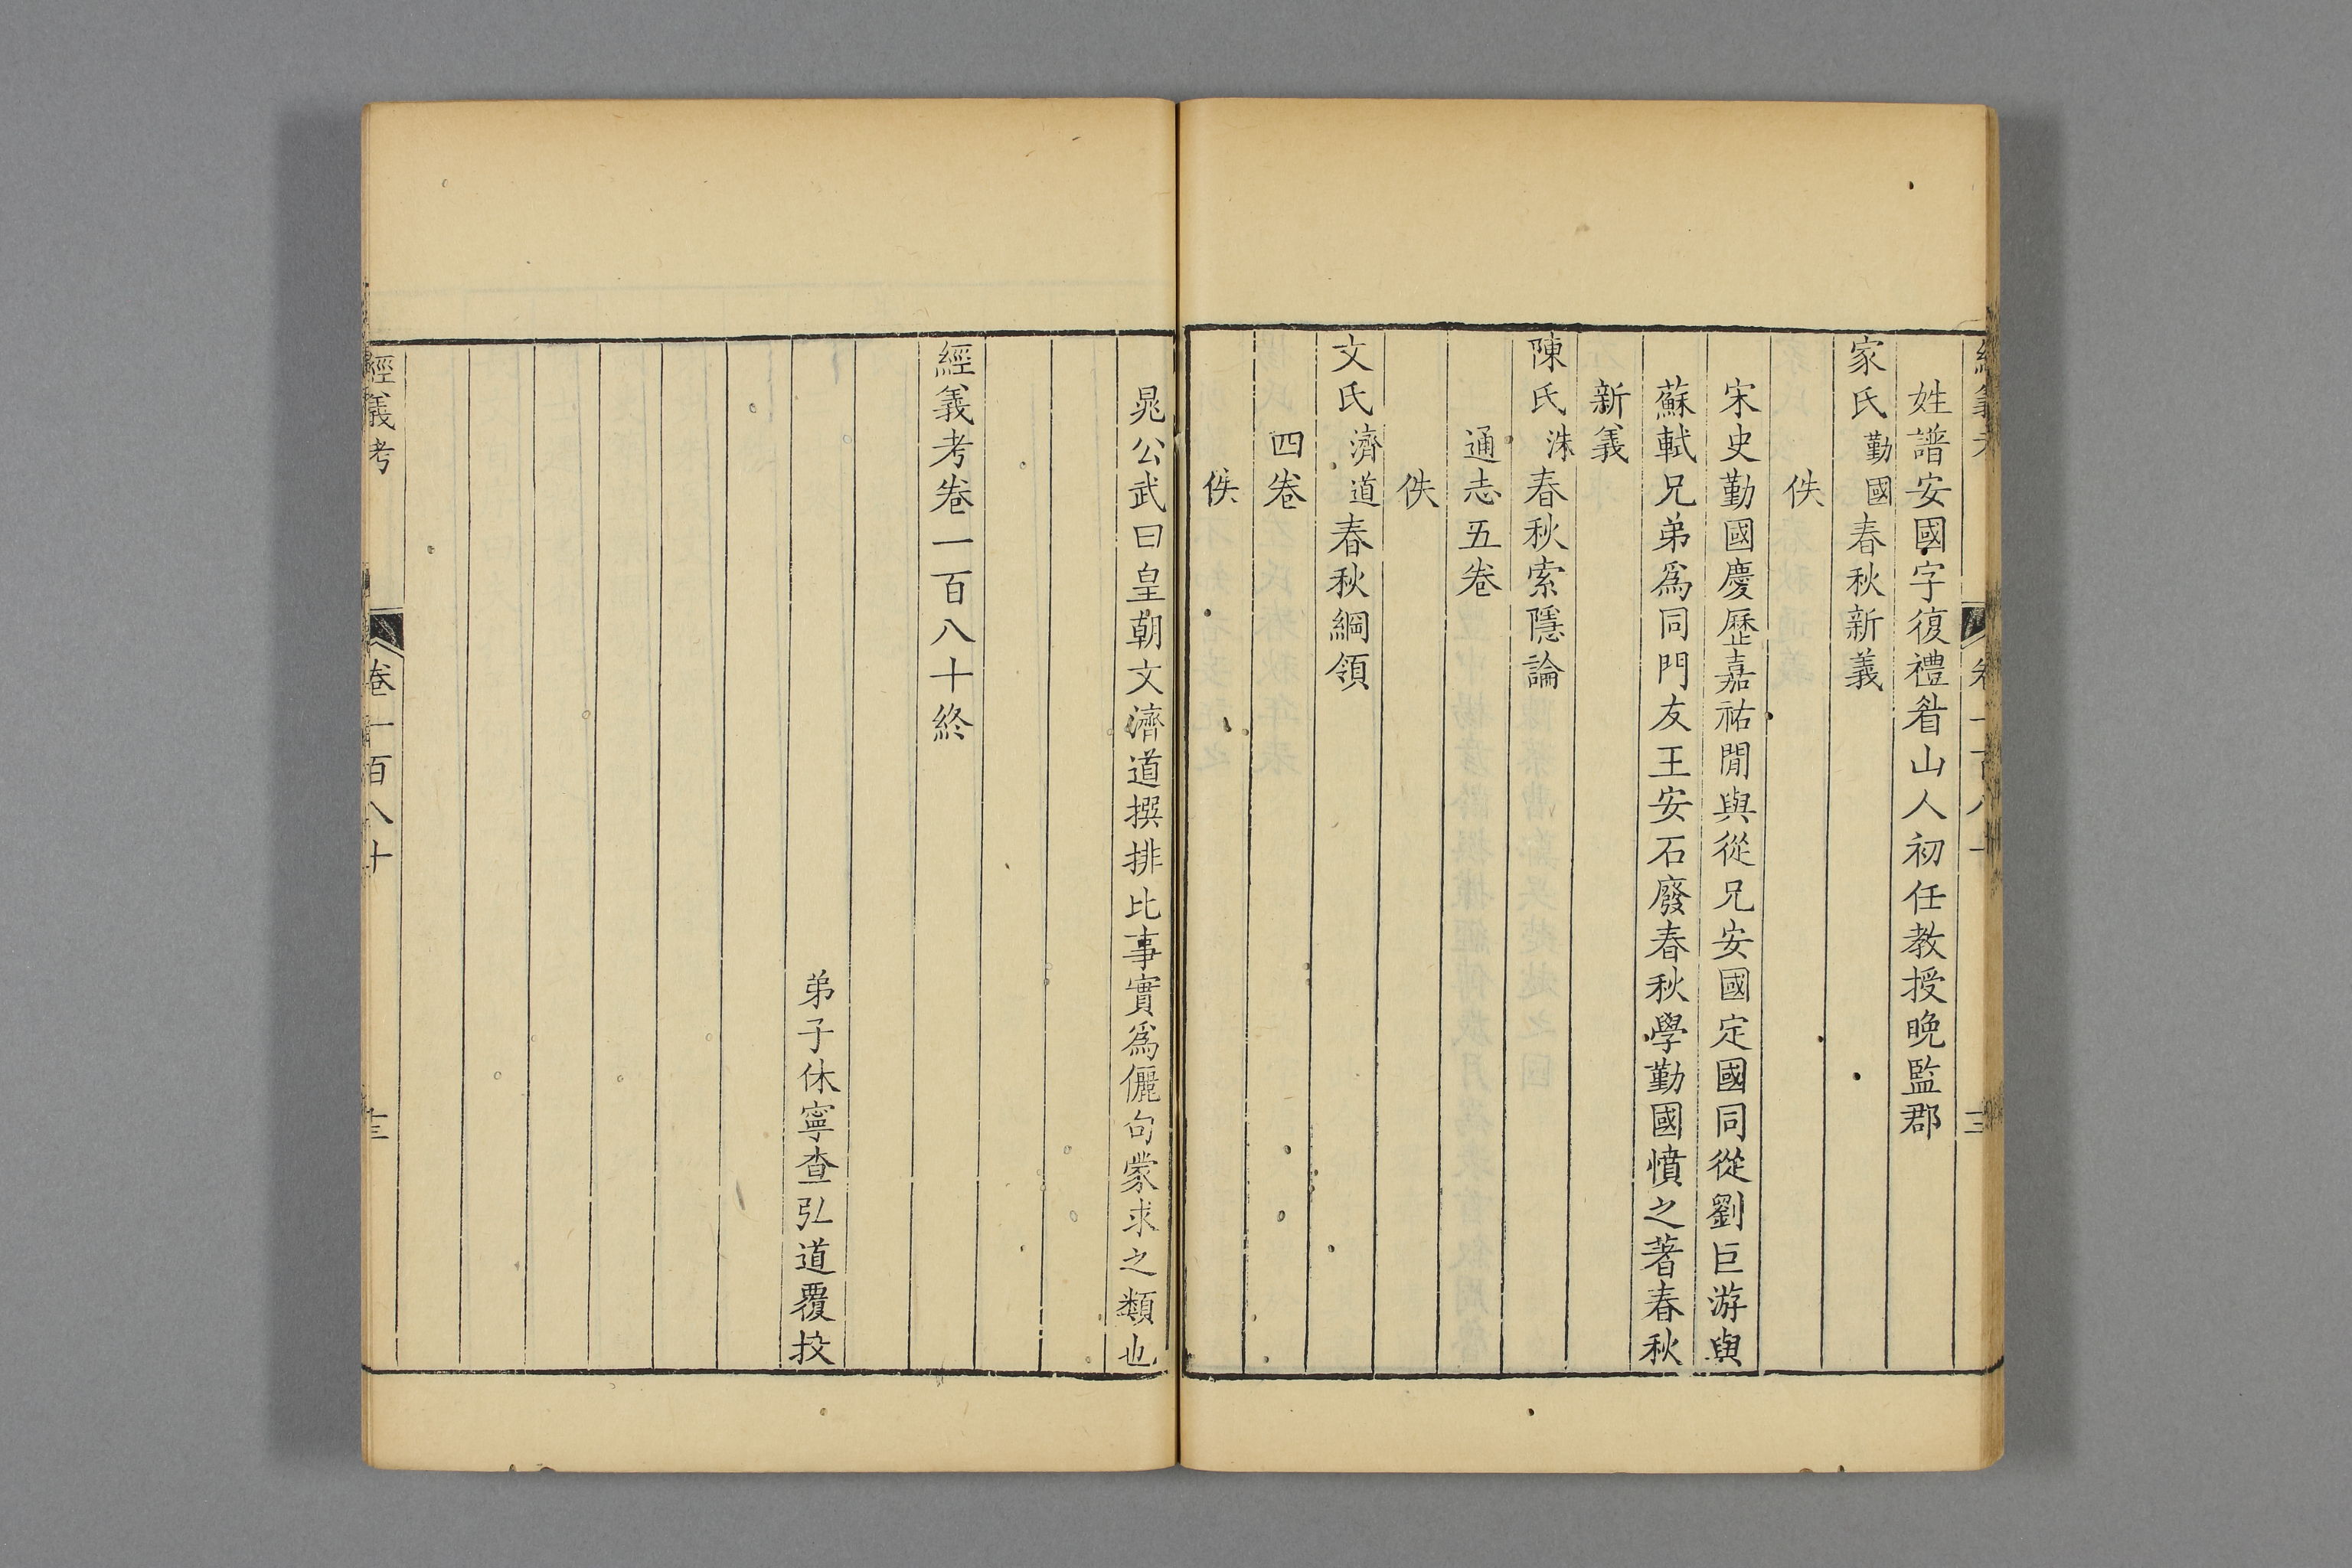 姓譜安國字復禮眉山人初任教授晚監郡
家氏勤國春秋新義
佚
宋史勤國慶歷嘉祐閒與從兄安國定國同從劉巨游與
蘇軾兄弟爲同門友王安石廢春秋學勤國憤之著春秋
新義
陳氏洙春秋索隱論
通志五卷
佚
文氏濟道春秋綱領
四卷
佚
晁公武曰皇朝文濟道撰排比事實爲儷句蒙求之類也
經義考卷一百八十終
弟子休寧查弘道覆挍
經義考 卷一百八十 十三